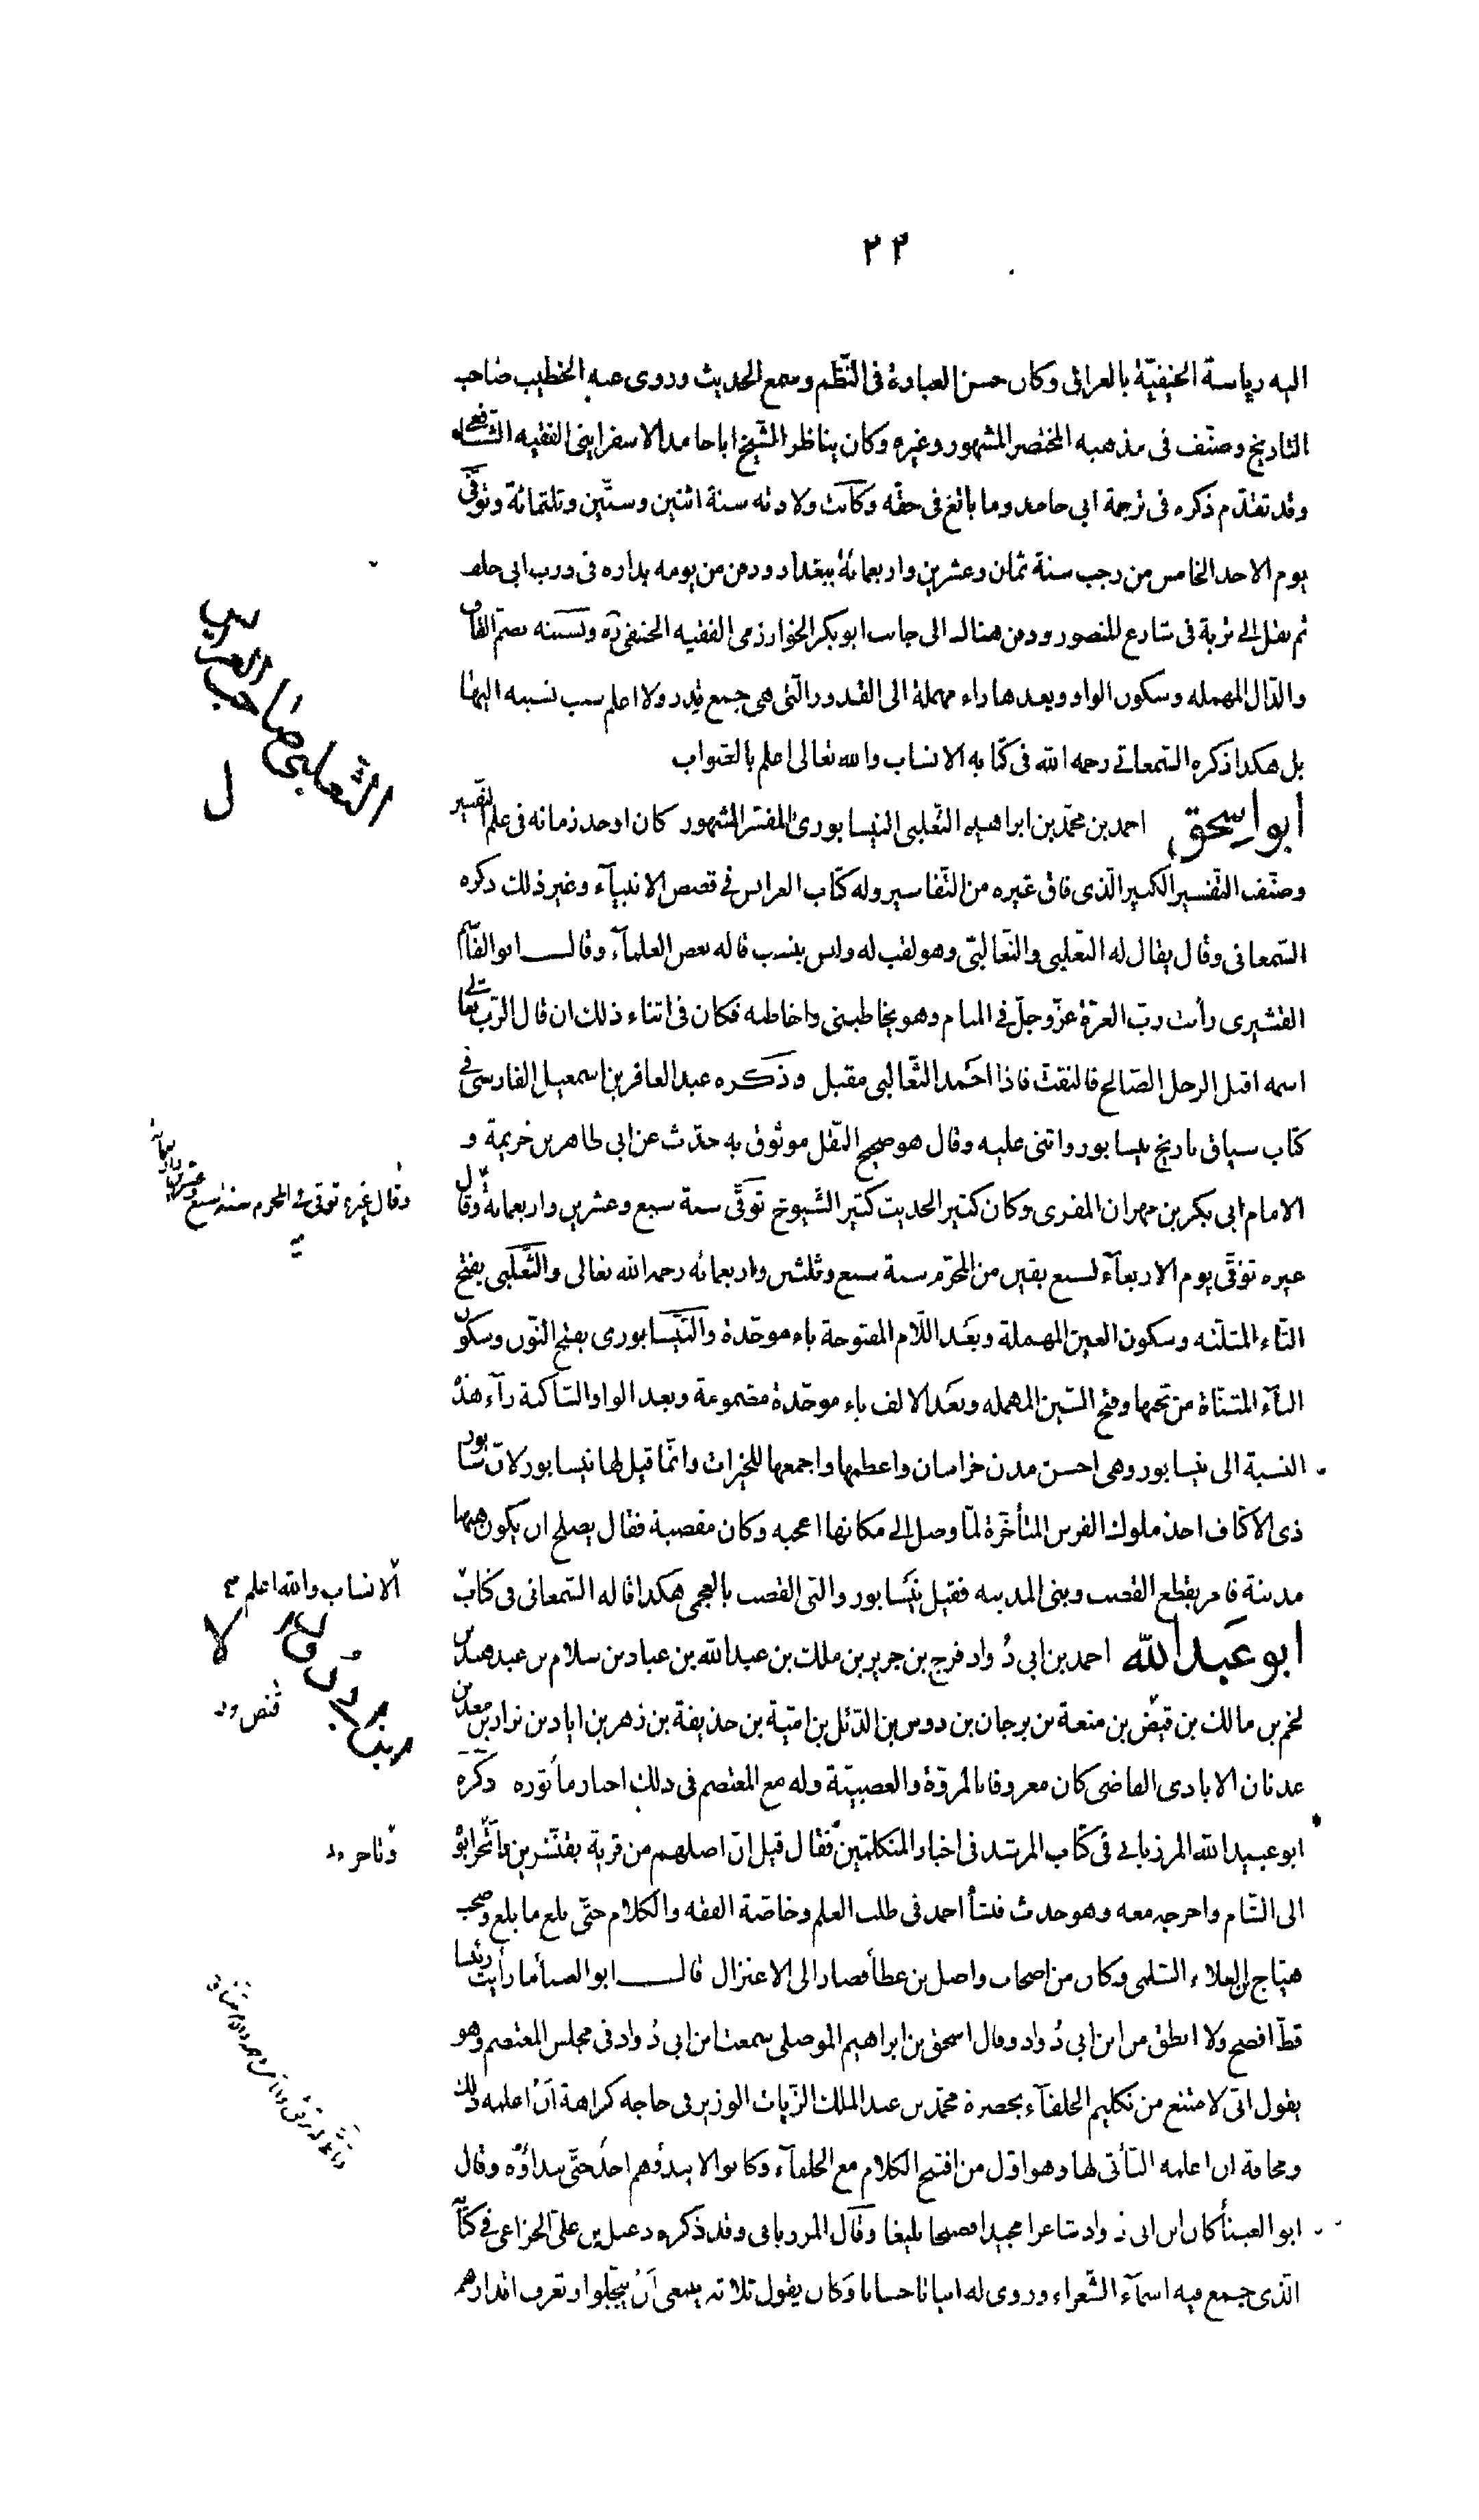 ٢٣
اليه رياسة الحنفيّة بالعراق وكان حسن العبارة فى النّظم وسمع الحديث وروى عنه الخطيب صاحب
التاريخ وصنّف فى مذهبه المختصر المشهور وغيره وكان يناظر الشّيخ ابا حامد الاسفراينى الفقيه الشّافعى
وقد تقدّم ذكره فى ترجمة ابى حامد وما بالغ فى حقّه وكانت ولادته سنة اثنين وستّين وثلثمائة وتوفّى
يوم الاحد الخامس من رجب سنة ثمان وعشرين واربعمائة ببغداد ودفن من يومه بداره فى درب ابى خلف
ثم نقل الى تربة فى شارع المنصور ودفن هناك الى جانب ابو بكر الخوارزمى الفقيه الحنفى ره ونسبته بضمّ القاف
والدّال المهمله وسكون الواو وبعدها راء مهملة الى القدور الّتى هى جمع قدر ولا اعلم سبب نسبه اليها
بل هكذا ذكره السّمعانى رحمه الله فى كتابه الانساب والله تعالى اعلم بالصّواب
الثّعلبى صاحب العرايس
ل
ابو اسحق احمد بن محمّد بن ابراهيم الثّعلبى النيسابورىّ المفسّر المشهور كان اوحد زمانه فى علم التّفسير
وصنّف التّفسير الكبير الّذى فاق غيره من التّفاسير وله كتاب العرايس فى قصص الانبيآء وغير ذلك ذكره
السّمعانى وقال يقال له الثّعلبى والثّعالبىّ وهو لقب له وليس بنسب قاله بعض العلمآء وقال ابو القاسم
القشيرى رأيت ربّ العزّة عزّ وجلّ فى المنام وهو يخاطبنى واخاطبه فكان فى اثناء ذلك ان قال الرّب تعالى
اسمه اقبل الرجل الصّالح فالتفتّ فاذا احمد الثّعالبى مقبل وذكره عبد الغافر بن اسمعيل الفارسى فى
كتاب سياق تاريخ نيسابور واثنى عليه وقال هو صحيح النّقل موثوق به حدّث عن ابى طاهر بن خزيمة و
الامام ابى بكر بن مهران المقرى وكان كثير الحديث كثير الشّيوخ توفّى سنة سبع وعشرين واربعمائة وقال
وقال غيره توفّى فى المحرم سنة سبع وعشرين واربعمائة
غيره توفّى يوم الاربعآء لسبع بقين من المحرّم سنة سبع وثلثين واربعمائه رحمه الله تعالى والثّعلبى بفتح
الثّاء المثلّثه وسكون العين المهملة وبعد اللّام المفتوحة باء موحّدة والنّيسابورى بفتح النّون وسكون
اليآء المثنّاة من تحتها وفتح السّين المهمله وبعد الالف باء موحّدة مضمومة وبعد الواو السّاكنة رآء هذه
النسبة الى نيسابور وهى احسن مدن خراسان واعظمها واجمعها للخيرات وانّما قيل لها نيسابور لانّ سابور
ذى الاكتاف احد ملوك الفرس المتأخّرة لمّا وصل الى مكانها اعجبه وكان مقصبة فقال يصلح ان يكون ههنا
مدينة فامر بقطع القصب وبنى المدينه فقيل نيسابور والنى القصب بالعجمى هكذا قاله السّمعانى فى كتاب
الانساب والله اعلم
لا
ابن ابى دُواد
ابو عبد الله احمد بن ابى دُواد فرج بن جرير بن ملك بن عبد الله بن عباد بن سلام بن عبد هند بن
لخم بن مالك بن قيض بن منعة بن برجان بن دوس بن الدّئل بن اميّة بن حذيفة بن زهر بن اياد بن نزار بن معد بن
قنص
عدنان الايادى القاضى كان معروفا بالمروّة والعصبيّة وله مع المعتصم فى ذلك اخبار مأثوره ذكره
ابو عبيد الله المرزبانى فى كتاب المرشد فى اخبار المتكلمين فقال قيل انّ اصلهم من قرية بقنّسرين واتّجر ابوه
الى الشّام واخرجه معه وهو حدث فنشأ احمد فى طلب العلم وخاصّة الفقه والكلام حتّى بلغ ما بلغ وصحب
هيّاج بن العلاء السّلمى وكان من اصحاب واصل بن عطأ فصار الى الاعتزال قال ابو العينأ ما رأيت رئيسا
قطّ افصح ولا انطق من ابن ابى دُواد وقال اسحق بن ابراهيم الموصلى سمعت ابن ابى دُواد فى مجلس المعتصم وهو
يقول انّى لامتنع من تكليم الخلفآء بحضرة محمّد بن عبد الملك الزّيات الوزير فى حاجه كراهة اَنْ اعلمه ذلك
ومخافة ان اعلمه التّأتى لها وهو اوّل من افتتح الكلام مع الخلفآء وكانوا لا يبدؤهم احد حتّى يبدأوه وقال
ابو العينأ كان ابن ابى دواد شاعرا مجيدا فصيحا بليغا وقال المرزبانى وقد ذكره دعبل بن علىّ الخزاعى فى كتابه
الّذى جمع فيه اسمآء الشّعراء وروى له ابياتا حسانا وكان يقول ثلاثه ينبغى اَنْ يبجّلوا وتعرف اقدارهم